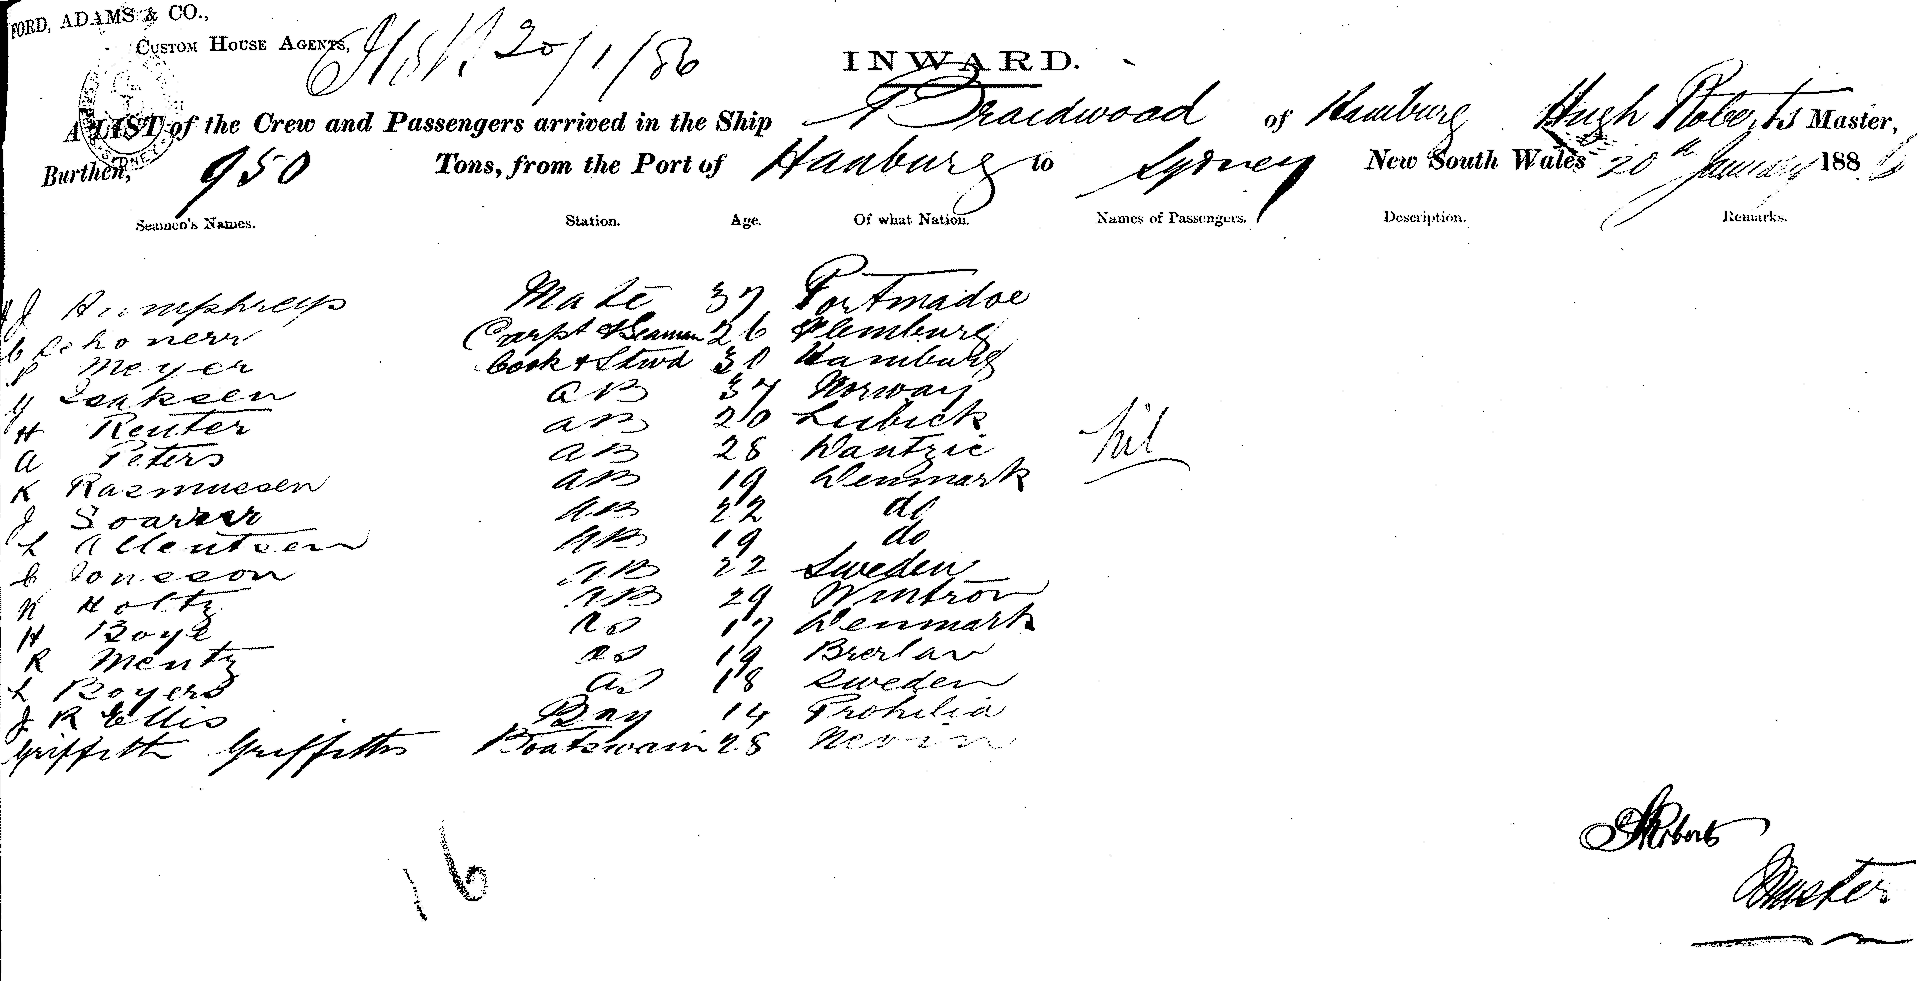 FORD, ADAMS & CO.,
CUSTOM HOUSE AGENTS,
20/1/86
INWARD.
A LIST of the Crew and Passengers arrived in the Ship Braidwood of Hamburg Hugh Roberts Master,
Burthen, 950 Tons, from the Port of Hamburg to Sydney New South Wales 20th January 1886
Seamen's Names. Station. Age. Of what Nation. Names of Passengers. Description. Remarks.
J Humphreys Mate 37 Portmadoc
Schonerr Carpt & Seaman 26 Flemburg
Meyer Cook & Stwd 30 Hamburg
Isaksen AB 37 Norway
H Reuter AB 20 Lubick
A Peters AB 28 Dantzic
K Rasmussen AB 19 Denmark
J AB 22 do
L Allentsen AB 19 do
Jonsson AB 22 Sweden
W Holtz AB 29
H Boye OS 17 Denmark
R Mentz OS 19 Breslau
L Boyers OS 18 Sweden
J R Ellis Boy 14
Griffith Griffiths Boatswain 28 Nevin
Nil
16
H Roberts
Master